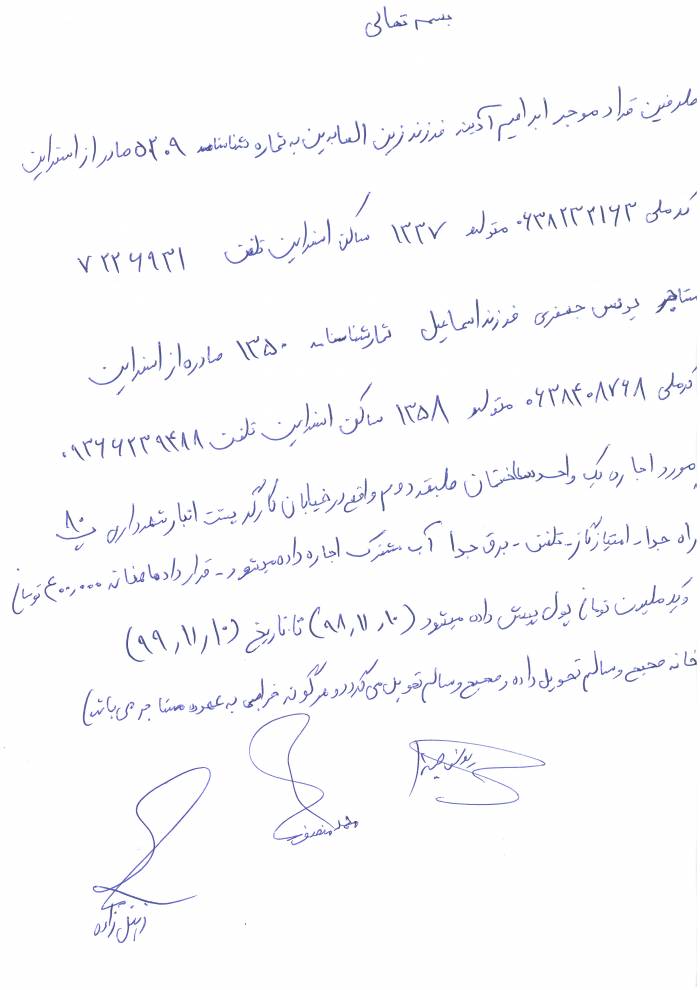 بسمه تعالی
طرفین قرارد موجر ابراهیم آدینه فرزند زین العابدین به شماره شناسنامه ۵۲۰۹ صادر از اسفراین
کد ملی ۰۶۳۸۲۳۲۱۶۳ متولد ۱۳۳۷ ساکن اسفراین تلفن ۷۲۲۶۹۳۱
مستاجر یونس جعفری فرزند اسماعیل شمارشناسنامه ۱۳۵۰ صادره از اسفراین
کدملی ۰۶۳۸۴۰۸۷۶۸ متولد ۱۳۵۸ ساکن اسفراین تلفن ۰۹۳۶۶۲۳۹۴۸۸
مورد اجاره یک واحد ساختمان طبقه دوم واقع در خیابان کارگر پشت انبار شهرداری پ ۸۰
راه جدا - امتیاز گاز - تلفن - برق جدا آب مشترک اجاره داده میشود - قرارداد ماهانه ۴۰۰٫۰۰۰ تومان
و یک ملیون تومان پول پیش داده میشود (۹۸٫۱۱٫۱۰) تا تاریخ (۹۹٫۱۱٫۱۰)
خانه صحیح و سالم تحویل داده و صحیح و سالم تحویل می گردد و هرگونه خرابی به عهده مستاجر می باشد)
یونس
محمد
زاده